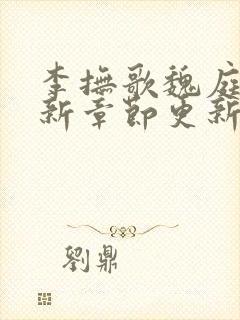 李撫歌魏庭
新章節更新
劉鼎